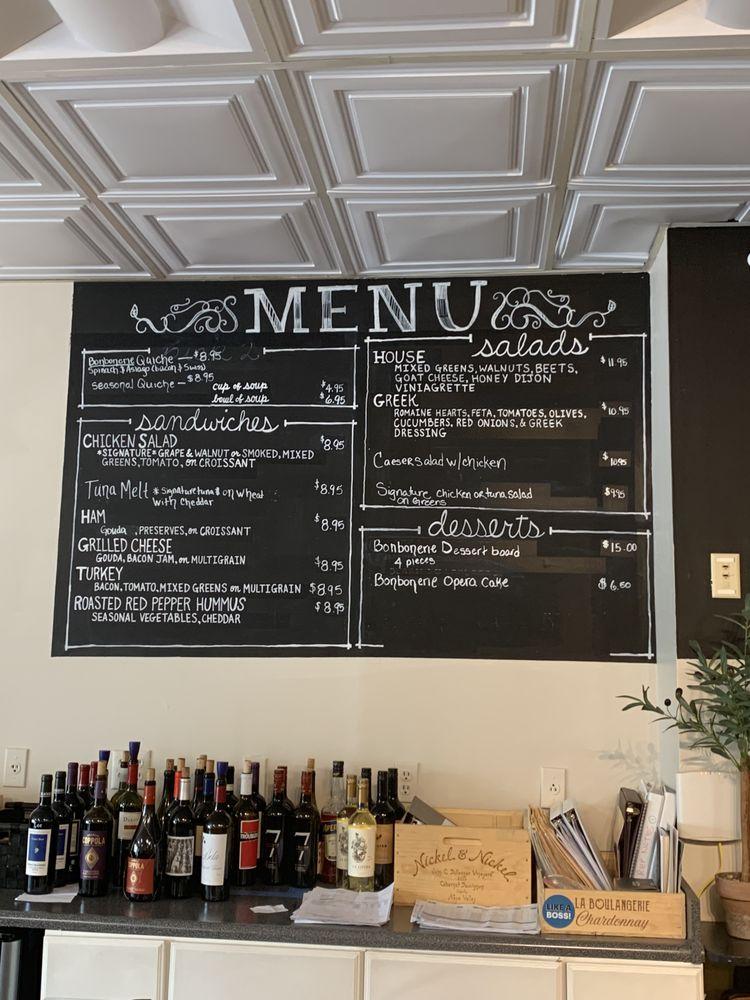 MENU
Bonbonerie Quiche — $8.95
Spinach & Asiago (bacon & Swiss)
Seasonal Quiche — $8.95
cup of soup $4.95
bowl of soup $6.95
sandwiches
CHICKEN SALAD $8.95
*SIGNATURE* GRAPE & WALNUT or SMOKED, MIXED
GREENS, TOMATO, on CROISSANT
Tuna Melt *signature tuna* on wheat $8.95
with cheddar
HAM $8.95
Gouda, PRESERVES, on CROISSANT
GRILLED CHEESE
GOUDA, BACON JAM, on MULTIGRAIN $8.95
TURKEY
BACON, TOMATO, MIXED GREENS on MULTIGRAIN $8.95
ROASTED RED PEPPER HUMMUS $8.95
SEASONAL VEGETABLES, CHEDDAR
salads
HOUSE $11.95
MIXED GREENS, WALNUTS, BEETS,
GOAT CHEESE, HONEY DIJON
VINIAGRETTE
GREEK $10.95
ROMAINE HEARTS, FETA, TOMATOES, OLIVES,
CUCUMBERS, RED ONIONS, & GREEK
DRESSING
Caeser Salad w/chicken $10.95
Signature chicken or tuna salad $9.95
on Greens
desserts
Bonbonerie Dessert board $15.00
4 pieces
Bonbonerie Opera Cake $6.50
COPPOLA
COPPOLA
7
7
Nickel & Nickel
Cabernet Sauvignon
LIKE A
BOSS!
LA BOULANGERIE
Chardonnay